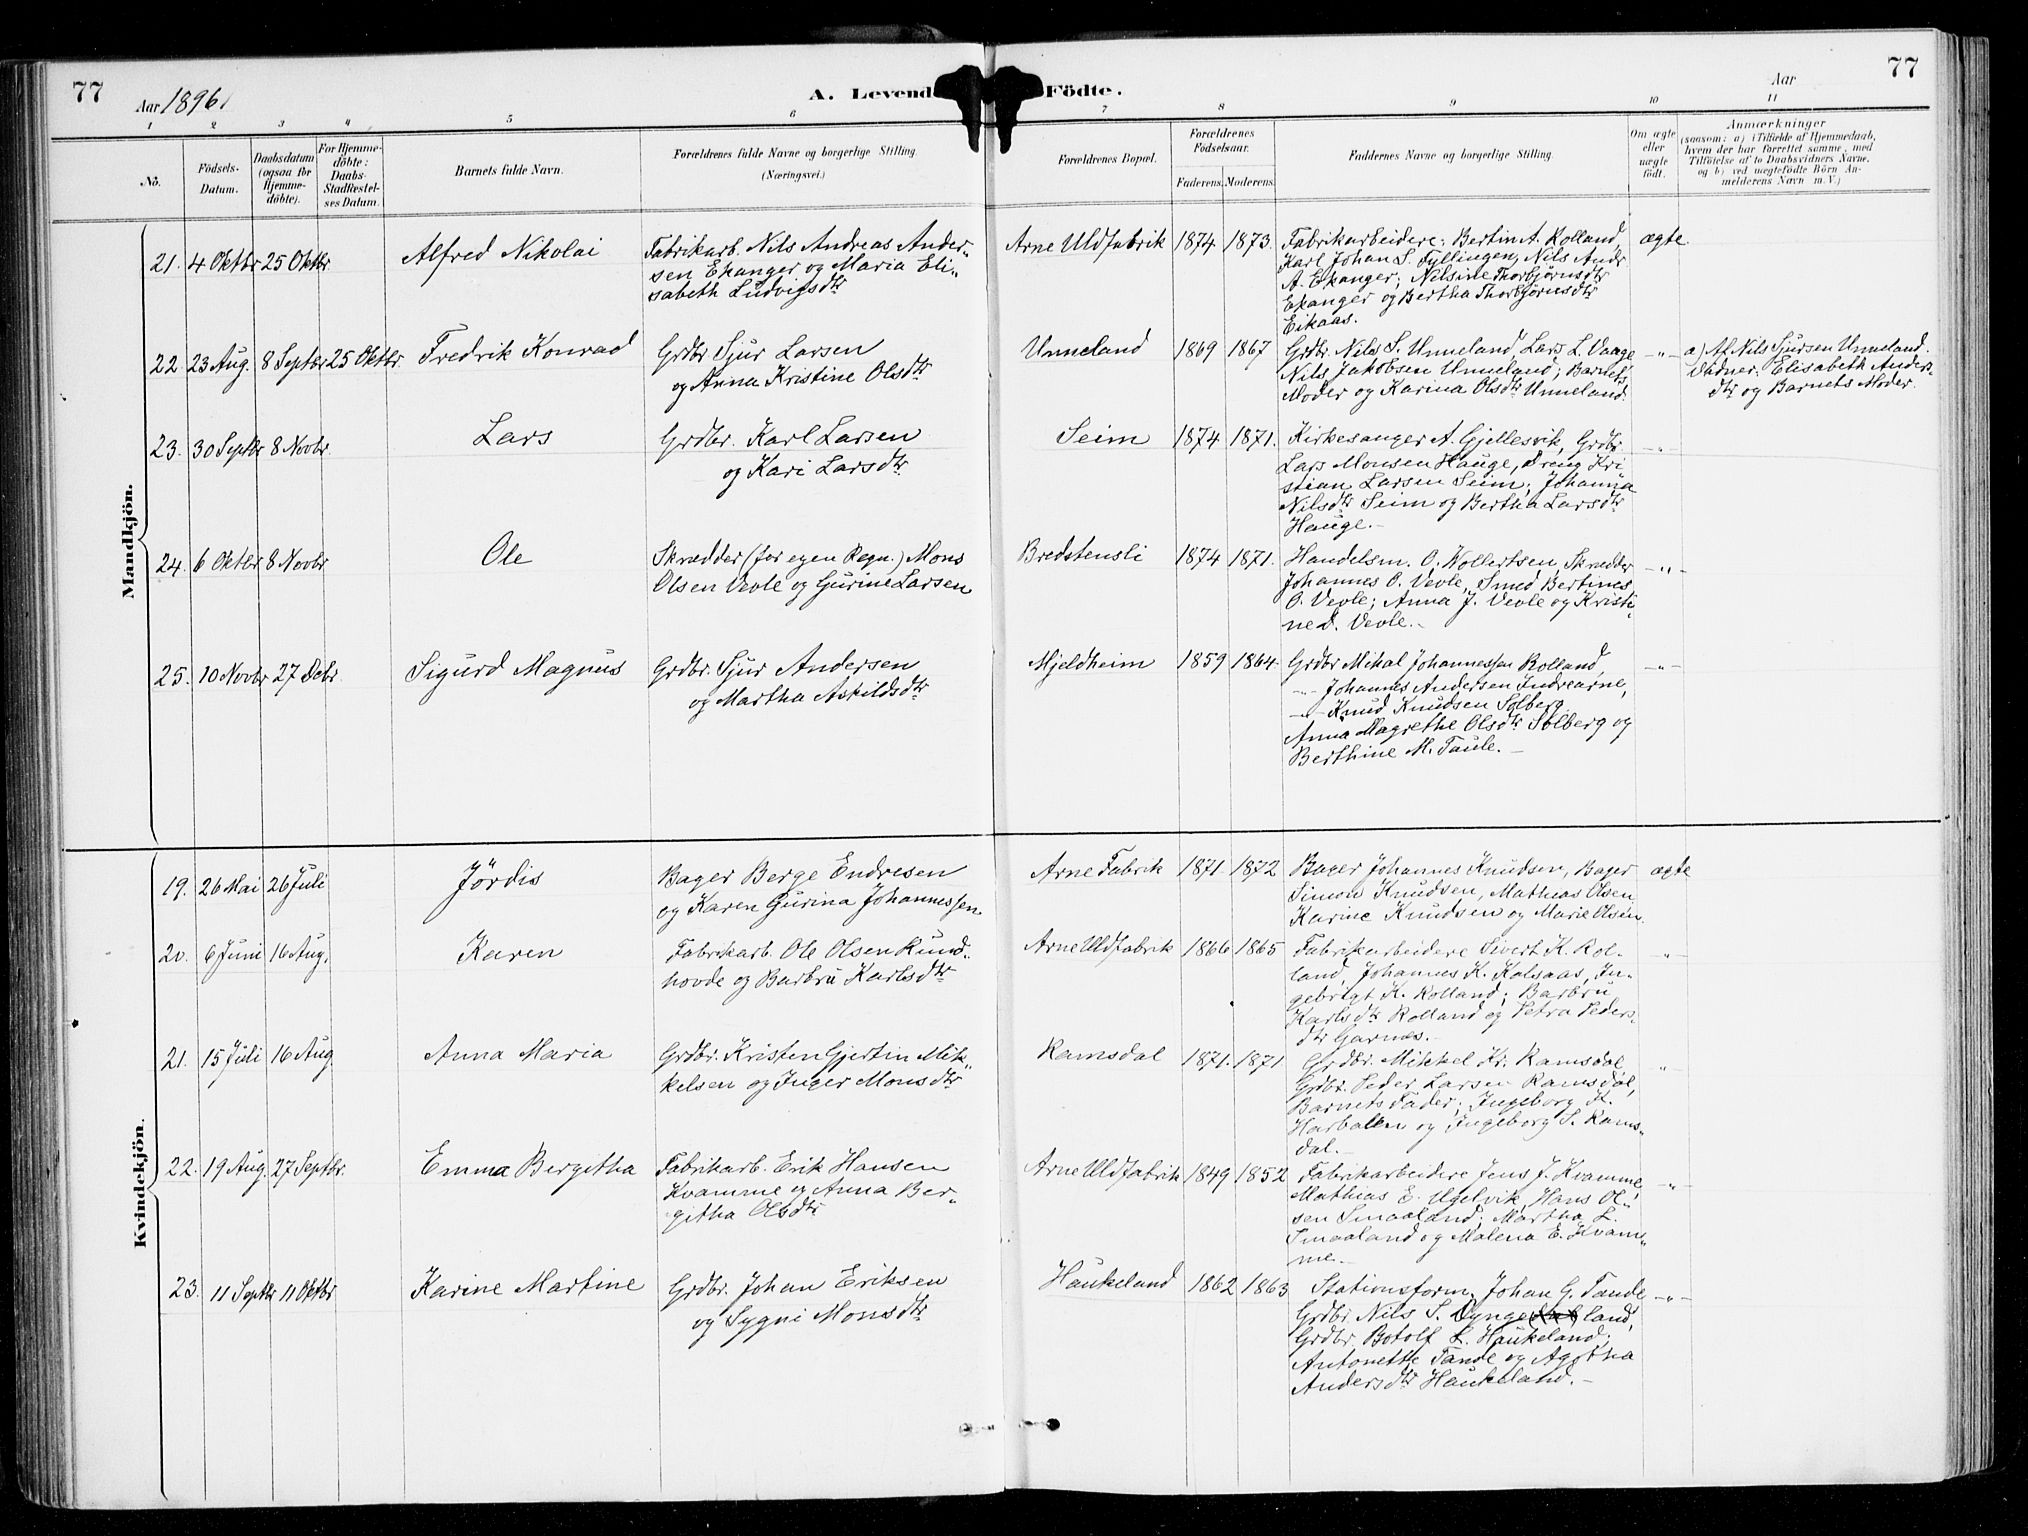 77
Aar 1896.
A. Levende Födte.
Aar
77
1 2 3 4 5 6 7 8 9 10 11
No.
Födsels-
Datum.
Daabsdatum
(ogsaa for
Hjemme-
döbte).
For Hjemme-
döbte:
Daabs-
Stadfæstel-
ses Datum.
Barnets fulde Navn.
Forældrenes fulde Navne og borgerlige Stilling.
(Næringsvei.)
Forældrenes Bopæl.
Forældrenes
Födselsaar.
Faderens. Moderens.
Faddernes Navne og borgerlige Stilling.
Om ægte
eller
uægte
födt.
Anmærkninger
(saasom: a) i Tilfælde af Hjemmedaab,
hvem der har forrettet samme, med
Tilföielse af to Daabsvidners Navne,
og b) ved uægtefödte Börn An-
melderens Navn m. V.)
Mandkjön.
21. 4 Oktbr 25 Oktbr. Alfred Nikolai
Fabrikarb. Nils Andreas Ander-
sen Ekanger og Maria Eli-
sabeth Ludvigsdtr
Arne Uldfabrik 1874 1873.
Fabrikarbeidere: Bertin A. Rolland,
Karl Johan S. Fyllingen, Nils Andr.
A. Ekanger; Nilsine Thorbjørnsdtr
Ekanger og Bertha Thorbjørnsdtr
Eikaas.
ægte
22. 23 Aug. 8 Septbr 25 Oktbr. Fredrik Konrad
Grdbr. Sjur Larsen
og Anna Kristine Olsdtr
Unneland 1869 1867
Grdbr. Nils S. Unneland, Lars L. Vaage
Nils Jakobsen Unneland; Barnets
Moder og Karina Olsdtr Unneland.
-"-
a) Af Nils Sjursen Unneland.
Vidner: Elisabeth Anders-
dtr og Barnets Moder.
23. 30 Septbr 8 Novbr. Lars
Grdbr. Karl Larsen
og Kari Larsdtr
Seim 1874 1871.
Kirkesanger A. Gjellesvik, Grdbr.
Lars Monsen Hauge, Dreng Kri-
stian Larsen Seim; Johanna
Nilsdtr Seim og Bertha Larsdtr
Hauge.-
-"-
24. 6 Oktbr 8 Novbr Ole
Skrædder (for egen Regn.) Mons
Olsen Vevle og Gurine Larsen
Bredstensli 1874 1871.
Handelsm. O. Kollertsen, Skrædder
Johannes O. Vevle, Smed Bertines
O. Vevle; Anna J. Vevle og Kristi-
ne d. Vevle.-
-"-
25. 10 Novbr 27 Debr. Sigurd Magnus
Grdbr. Sjur Andersen
og Martha Askildsdtr
Mjeldheim 1859 1864.
Grdbr Mikal Johannessen Rolland,
-"- Johannes Andersen Indrearne,
-"- Knud Knudsen Solberg
Anna Magrethe Olsdtr Solberg og
Berthine M. Taule.-
-"-
Kvindekjön.
19. 26 Mai 26 Juli Jördis
Bager Berge Endresen
og Karen Gurina Johannessen
Arne Fabrik 1871. 1872
Bager Johannes Knudsen, Bager
Simon Knudsen, Mathias Olsen
Karine Knudsen og Marie Olsen.
ægte
20. 6 Juni 16 Aug. Karen
Fabrikarb. Ole Olsen Rund-
hovde og Barbru Karlsdtr
Arne Uldfabrik 1866 1865
Fabrikarbeidere Sivert K. Rol-
land, Johannes K. Kolsaas, In-
gebrigt K. Rolland; Barbru
Karlsdtr Rolland og Petra Peders-
dtr Garnæs.-
-"-
21. 15 Juli 16 Aug. Anna Maria
Grdbr. Kristen Gjertin Mik-
kelsen og Inger Monsdtr
Ramsdal 1871. 1871.
Grdbr. Mikkel Kr. Ramsdal
Grdbr. Peder Larsen Ramsdal,
Barnets Fader; Ingeborg K.
Harbakken og Ingeborg S. Rams-
dal.-
"
22. 19 Aug. 27 Septbr. Emma Bergitha
Fabrikarb. Erik Hansen
Kvamme og Anna Ber-
githa Olsdtr
Arne Uldfabrik 1849 1852
Fabrikarbeidere Jens J. Kvamme,
Mathias E. Ugelvik, Hans Ol-
sen Smaaland; Martha L.
Smaaland og Malena E. Kvam-
me.-
-"-
23. 11 Septbr 11 Oktbr Karine Martine
Grdbr. Johan Eriksen
og Sygni Monsdtr
Haukeland 1862 1863
Stationsform. Johan G. Tande
Grdbr. Nils S. Dyngeland,
Grdbr. Botolf L. Haukeland;
Antonette Tande og Agatha
Andersdtr Haukeland.-
-"-